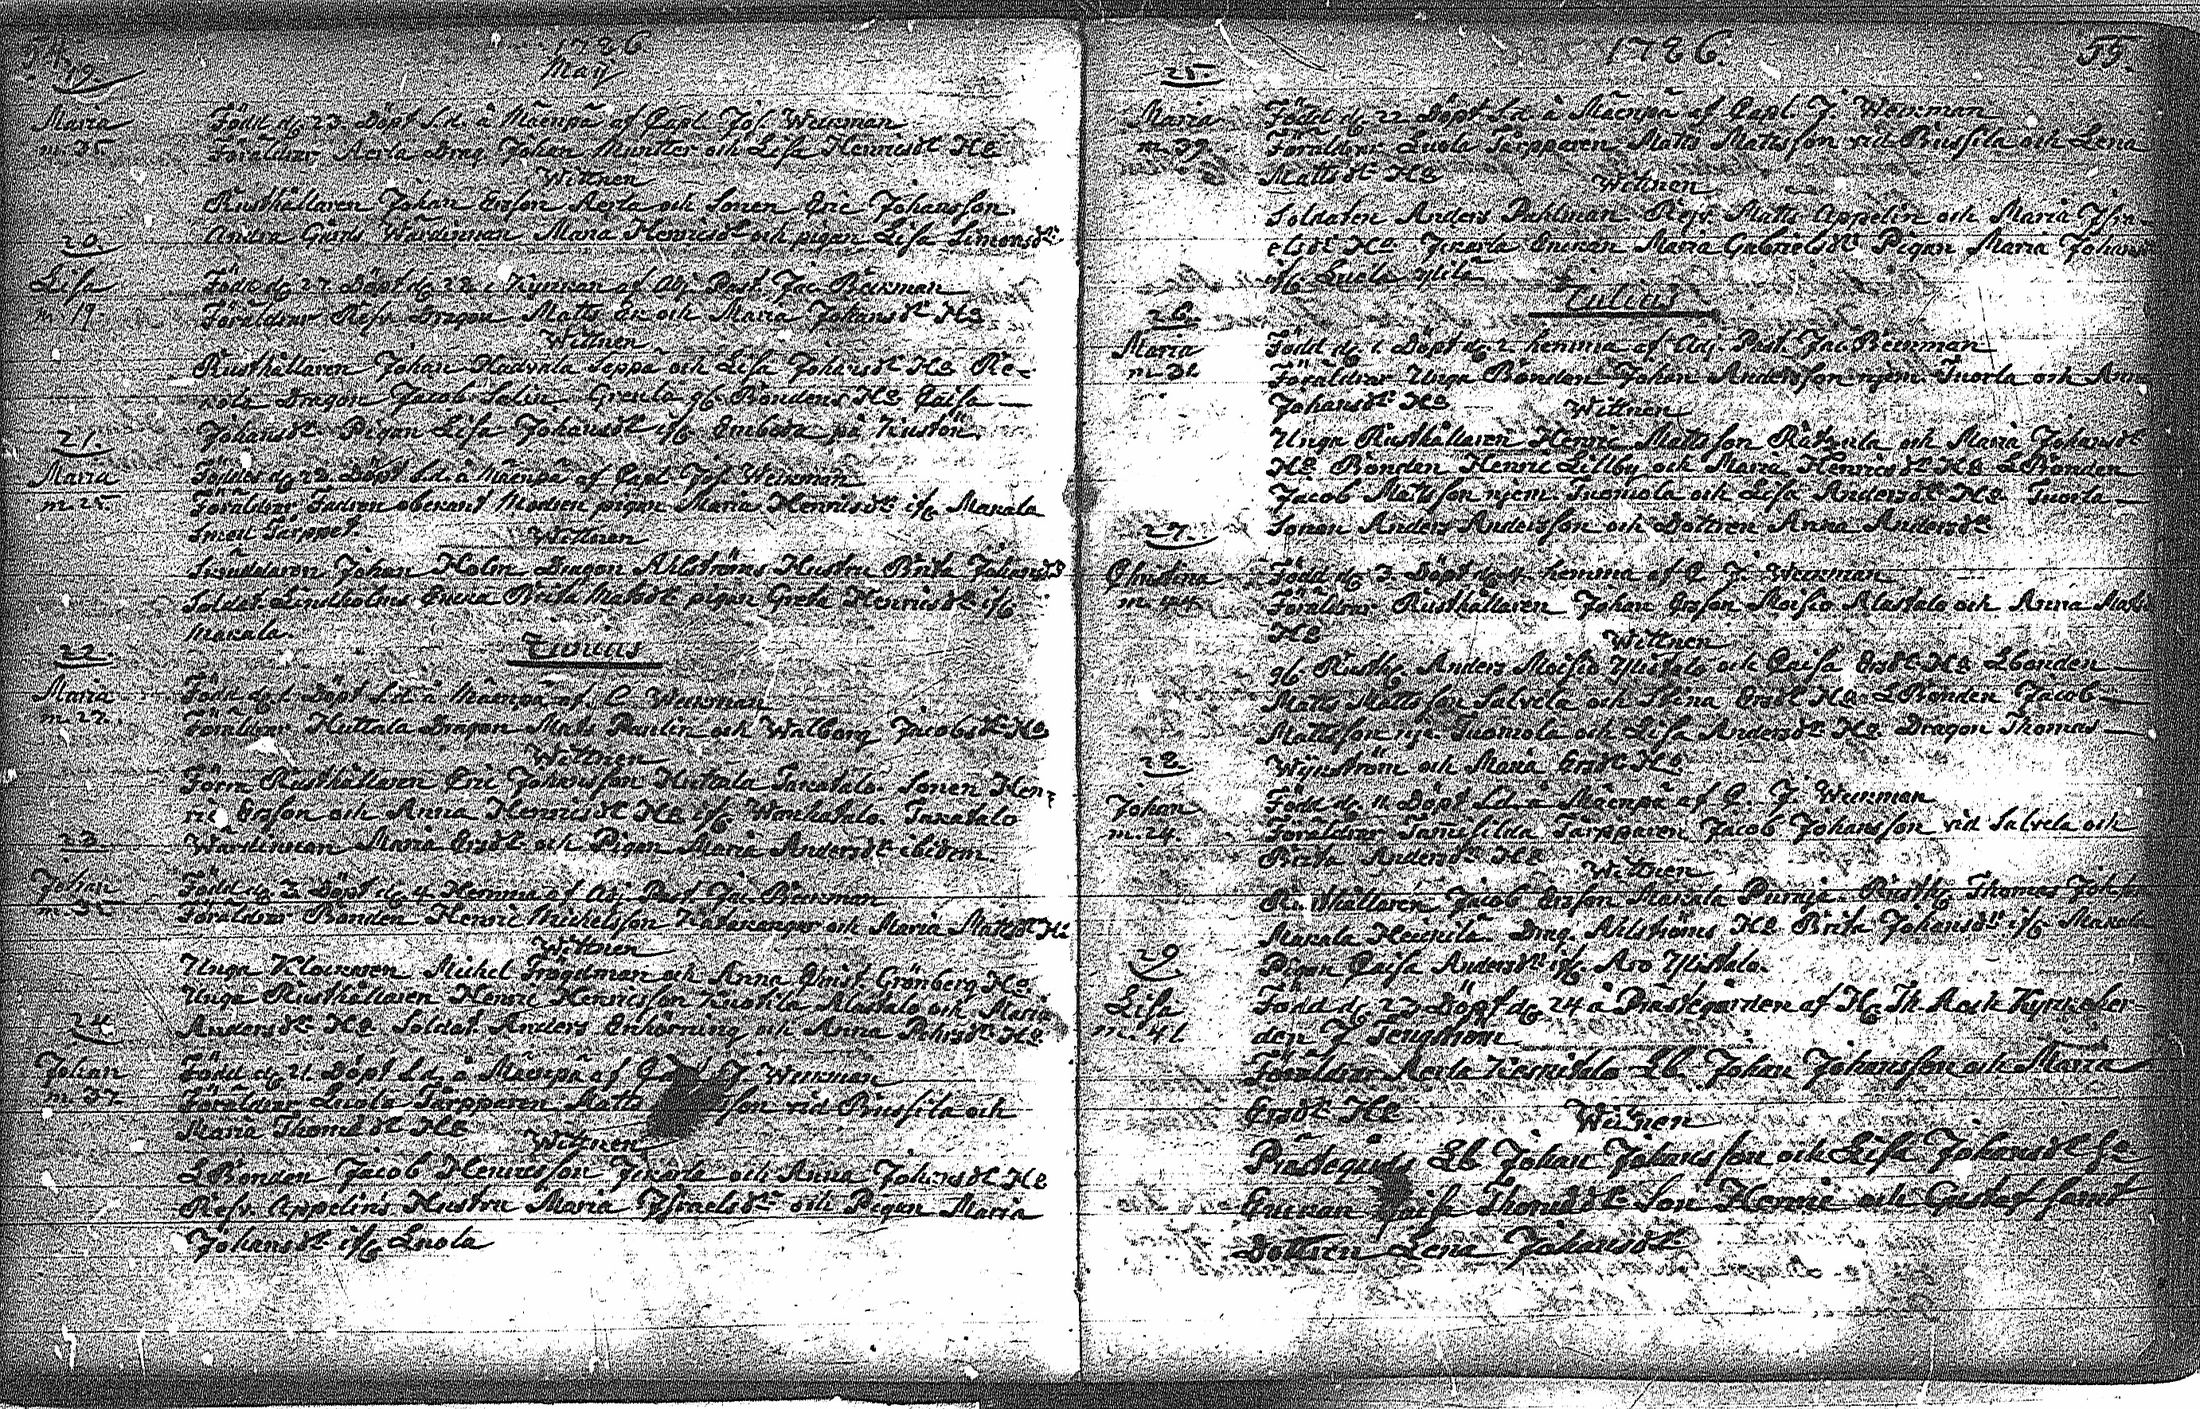 54.
1786
May
19.
Maria
m. 35.
Född dg 23. Döpt S.d. å Mäenpä af Capl. Joh. Weckman
Föräldrar Aerla Drag. Johan Munster och Lisa Henricsdr Ha
Wittnen
Rusthållaren Johan Ersson Aerla och Sonen Eric Johansson
Andra Gårds Wärdinnan Maria Henricsdr och pigan Lisa Simonsdr
20.
Lisa
m. 19.
Född dg 27. Döpt dg 28 i Kyrkan af Adj. Past. Jac. Beckman
Föräldrar Resv. Dragon Matts Ek och Maria Johansdr Ha
Wittnen
Rusthållaren Johan Seppä och Lisa Johansdr Ha
Dragon Jacob Selin Bondens Ha Caisa
Johansdr Pigan Lisa Johansdr på
21.
Maria
m. 25.
Föddes dg 29 Döpt S.d. å Mäenpä af Capl. Joh. Weckman
Föräldrar Fadren obekant Modren pigan Maria Henricsdr ifr Makala
Smed Tårppet.
Wittnen
Johan Holm Dragon Ahlströms Hustru Brita Johansdr
Soldat Lindholms Enka Brita pigan Greta Henricsdr ifr
Makala.
Junius
22.
Maria
m. 27.
Född dg 1. Döpt S.d. å Mäenpä af C. Weckman
Föräldrar Huttala Dragon Matts Paulin och Walborg Jacobsdr Ha
Wittnen
Förra Rusthållaren Eric Johansson Huttala Takatalo. Sonen Hen-
ric Ersson och Anna Henricsdr Ha ifr Wanhatalo. Takatalo
Wärdinnan Maria Ersdr och Pigan Maria Andersdr ibidem
23
Johan
m. 32
Född dg 3 Döpt dg 4. Hemma af Adj. Past. Jac. Beckman
Föräldrar Bonden Henric Michelsson och Maria Mattsdr Ha
Wittnen
Unga Klockaren Michel Trogelman och Anna Christ. Grönberg Ha
Unga Rusthållaren Henric Henricsson Alastalo och Maria
Andersdr Ha Soldat Anders Enhörning och Anna Ha
24
Johan
m. 37
Född dg 21. Döpt S.d. å Mäenpä af Capl. J. Weckman
Föräldrar Luola Tårpparen Matts son vid Pussila och
Maria Thomasdr Ha
Wittnen
L. Bonden Jacob Henricsson och Anna Johansdr Ha
Resv. Appelins Hustru Maria Israelsdr och Pigan Maria
Johansdr ifr Luola
1786.
55.
25.
Maria
m. 39
Född dg 22 Döpt S.d. å Mäenpä af Capl. J. Weckman
Föräldrar Luola Tårpparen Matts Mattsson vid Pussila och Lena
Mattsdr Ha
Wittnen
Soldaten Anders Pahlman Resv. Matts Appelin och Maria Isra-
elsdr Ha Enckan Maria Gabrielsdr Pigan Maria Johansdr
ifr Luola
Julius
26.
Maria
m 32
Född dg 1. Döpt dg 2 hemma af Adj. Past. Jac. Beckman
Föräldrar Unga Bonden Johan Andersson Tuorla och Anna
Johansdr Ha
Wittnen
Unga Rusthållaren Henric Mattsson och Maria Johansdr
Ha. Bonden Henric Lillby och Maria Henricsdr Ha L Bonden
Jacob Mattsson Tuomola och Lisa Andersdr Ha Tuorla
Sonen Anders Andersson och Dottren Anna Andersdr
27.
Christina
m. 44
Född dg 3. Döpt dg 4. hemma af C. J. Weckman
Föräldrar Rusthållaren Johan Ersson Moisio Alastalo och Anna Mattsdr
Ha
Wittnen
gl. Rusth. Anders Moisio Ylistalo och Caisa Ersdr Ha L bonden
Matts Mattsson Salvela och Stina Ersdr Ha L Bonden Jacob
Mattsson Tuomola och Lisa Andersdr Ha. Dragon Thomas
Wijkström och Maria Ersdr Ha
28.
Johan
m. 24
Född dg 11. Döpt S.d. å Mäenpä af C. J. Weckman
Föräldrar Tårpparen Jacob Johansson vid Salvela och
Brita Andersdr Ha
Wittnen
Rusthållaren Jacob Ersson Makala Rusth. Thomas Johansson
Makala Heickilä. Drag. Ahlströms Ha Brita Johansdr ifr Makala
Pigan Caisa Andersdr ifr Aro Ylistalo.
29
Lisa
m. 41
Född dg 23 Döpt dg 24 å Prästegården af Kyrckoher-
den J Tengström
Föräldrar Aerla Keskitalo Lb Johan Johansson och Maria
Ersdr Ha
Wittnen
Prästegårds Lb Johan Johansson och Lisa Johansdr
Enckan Caisa Thomasdr Son Henric och Gustaf samt
Dottren Lena Johansdr